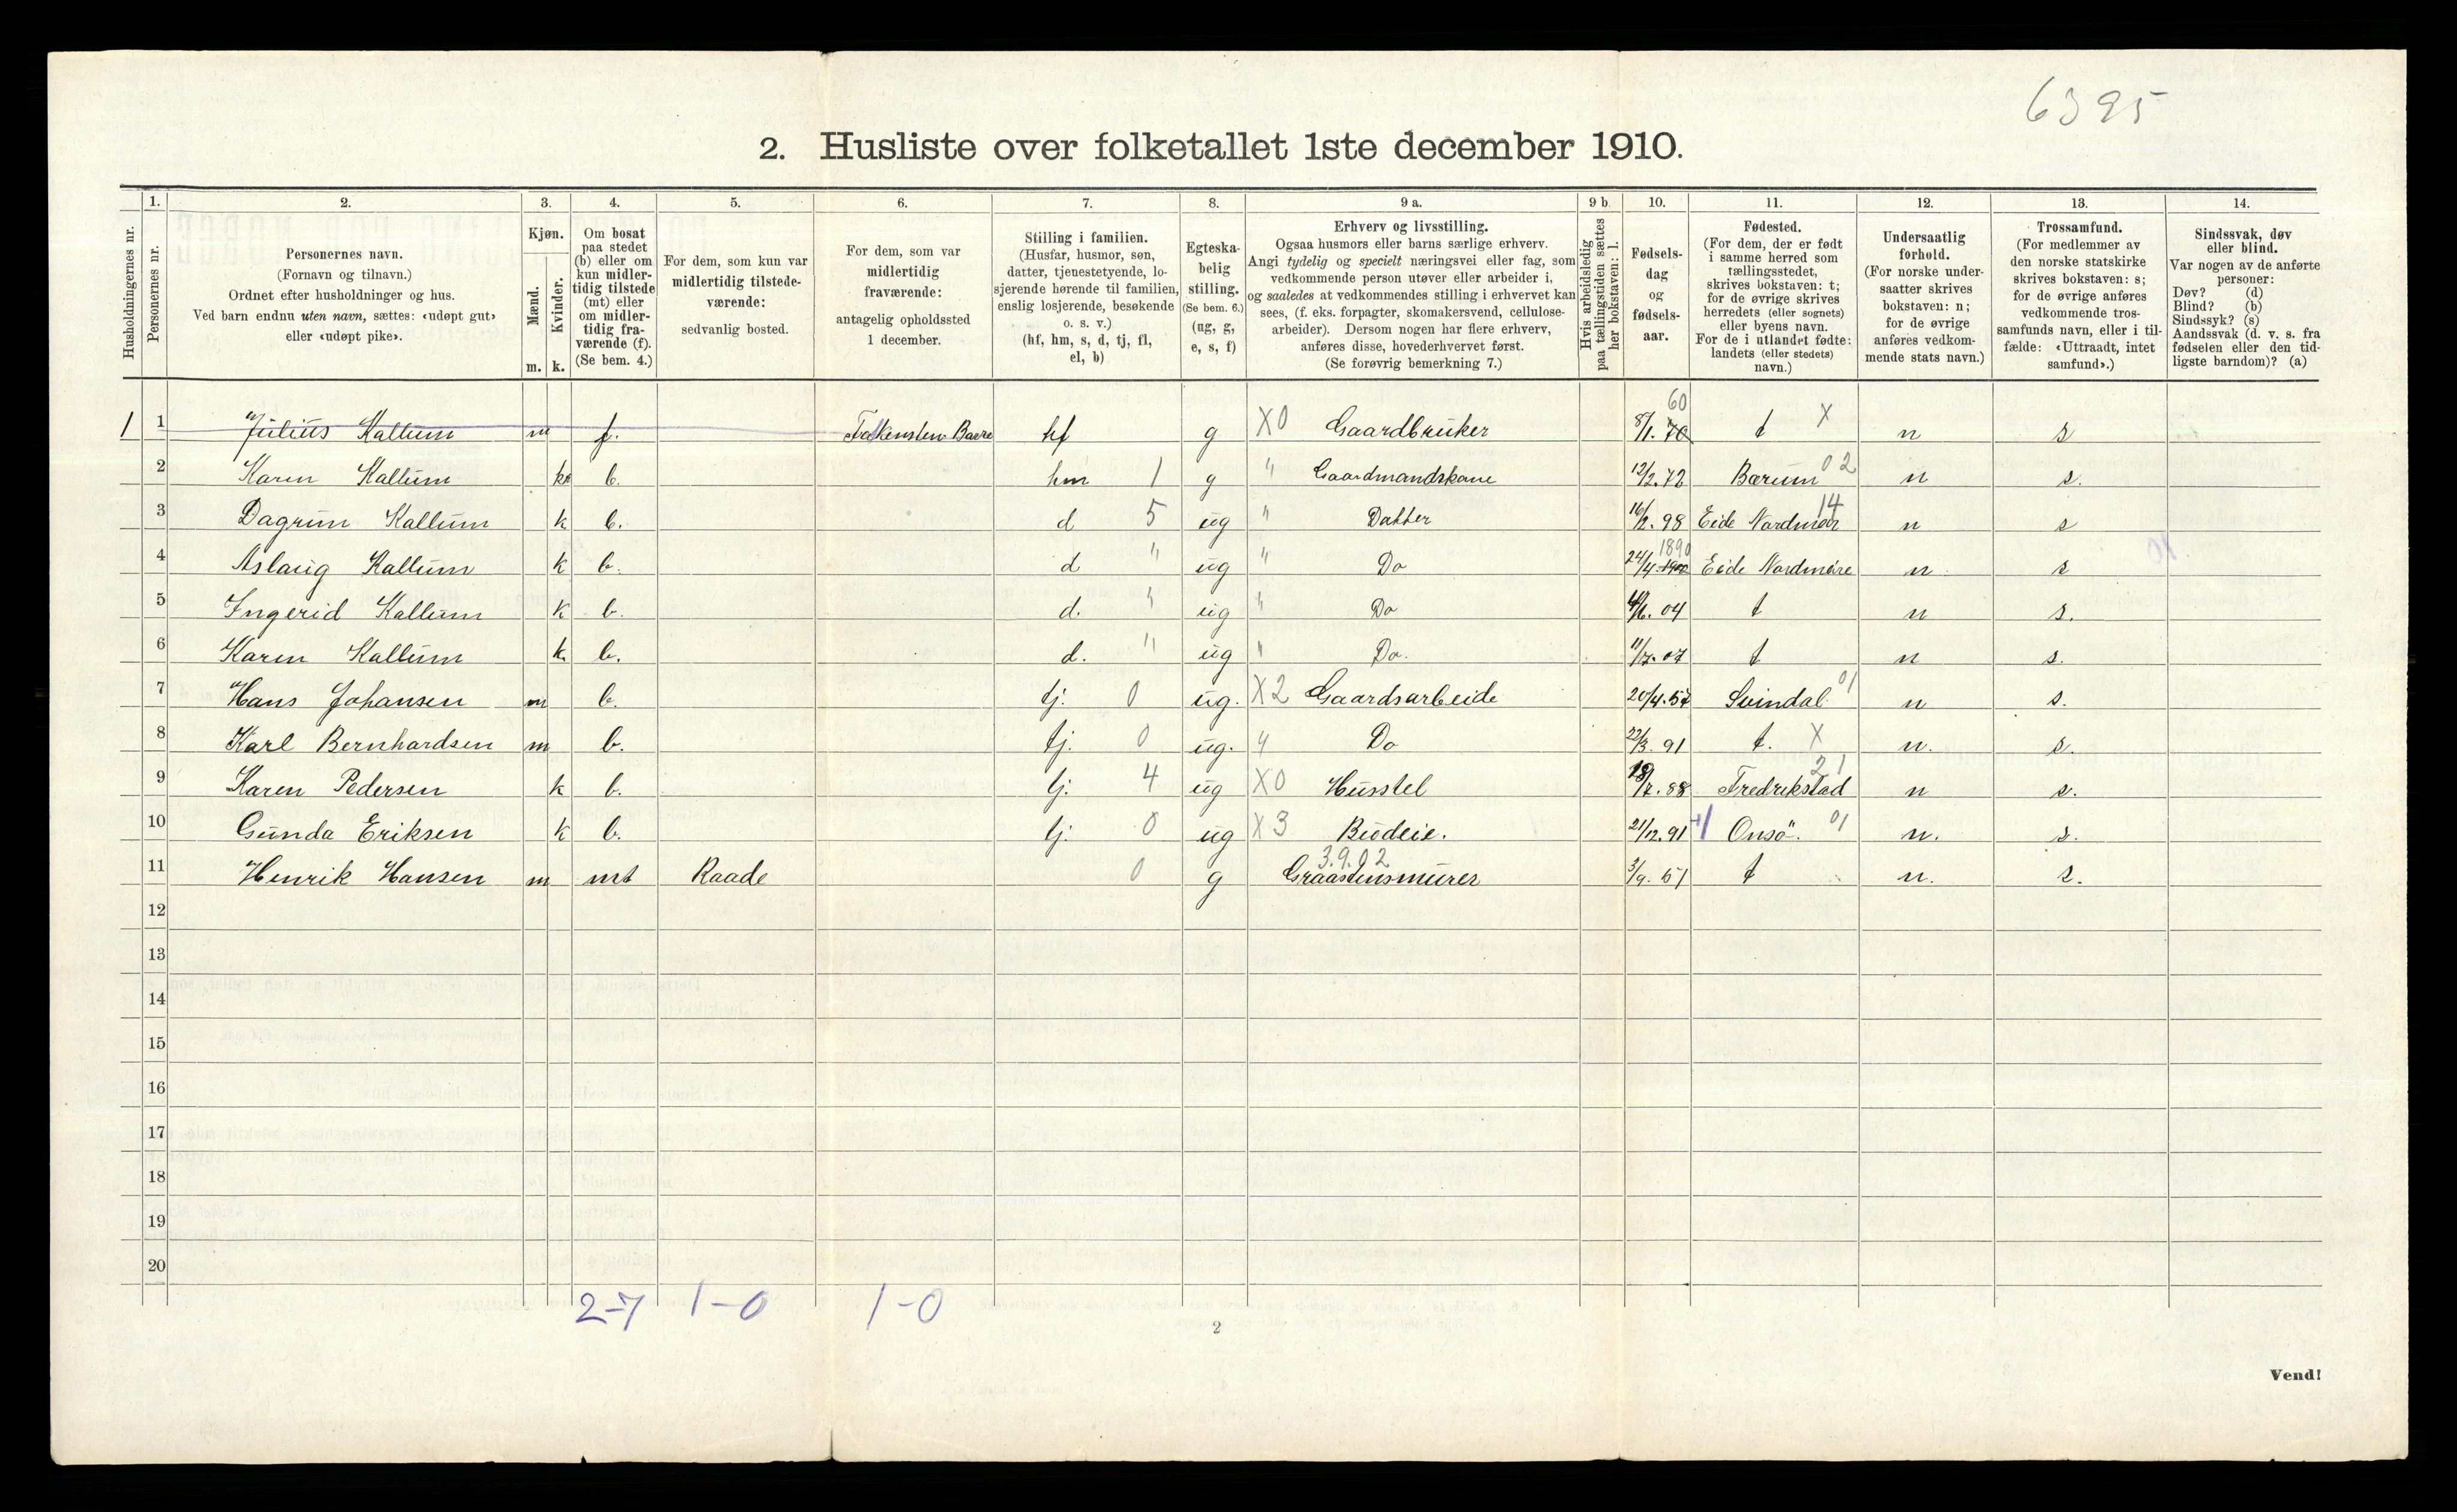 6395
2. Husliste over folketallet 1ste december 1910.
Husholdningernes nr.
1.
Personernes nr.
2.
Personernes navn.
(Fornavn og tilnavn.)
Ordnet efter husholdninger og hus.
Ved barn endnu uten navn, sættes: «udøpt gut»
eller «udøpt pike».
3.
Kjøn.
Mænd.
Kvinder.
m. k.
4.
Om bosat
paa stedet
(b) eller om
kun midler-
tidig tilstede
(mt) eller
om midler-
tidig fra-
værende (f).
(Se bem. 4.)
5.
For dem, som kun var
midlertidig tilstede-
værende:
sedvanlig bosted.
6.
For dem, som var
midlertidig
fraværende:
antagelig opholdssted
1 december.
7.
Stilling i familien.
(Husfar, husmor, søn,
datter, tjenestetyende, lo-
sjerende hørende til familien,
enslig losjerende, besøkende
o. s. v.)
(hf, hm, s, d, tj, fl,
el, b)
8.
Egteska-
belig
stilling.
(Se bem. 6.)
(ug, g,
e, s, f)
9 a.
Erhverv og livsstilling.
Ogsaa husmors eller barns særlige erhverv.
Angi tydelig og specielt næringsvei eller fag, som
vedkommende person utøver eller arbeider i,
og saaledes at vedkommendes stilling i erhvervet kan
sees, (f. eks. forpagter, skomakersvend, cellulose-
arbeider). Dersom nogen har flere erhverv,
anføres disse, hovederhvervet først.
(Se forøvrig bemerkning 7.)
9 b.
Hvis arbeidsledig
paa tællingstiden sættes
her bokstaven: l.
10.
Fødsels-
dag
og
fødsels-
aar.
11.
Fødested.
(For dem, der er født
i samme herred som
tællingsstedet,
skrives bokstaven: t;
for de øvrige skrives
herredets (eller sognets)
eller byens navn.
For de i utlandet fødte:
landets (eller stedets)
navn.)
12.
Undersaatlig
forhold.
(For norske under-
saatter skrives
bokstaven: n;
for de øvrige
anføres vedkom-
mende stats navn.)
13.
Trossamfund.
(For medlemmer av
den norske statskirke
skrives bokstaven: s;
for de øvrige anføres
vedkommende tros-
samfunds navn, eller i til-
fælde: «Uttraadt, intet
samfund».)
14.
Sindssvak, døv
eller blind.
Var nogen av de anførte
personer:
Døv? (d)
Blind? (b)
Sindssyk? (s)
Aandssvak (d. v. s. fra
fødselen eller den tid-
ligste barndom)? (a)
1 1 Julius Kallum m f. hf g X0 Gaardbruker 8/1. 70 60 t X n s
2 Karen Kallum k b. hm 1 g " Gaardmandskone 12/2. 72 Bærum 02 n s.
3 Dagrun Kallum k b. d 5 ug " Datter 16/2. 98 Eide Nordmør 14 n s
4 Aslaug Kallum k b. d " ug " Do 24/4 1900 1890 Eide Nordmøre n s
5 Ingerid Kallum k b. d. " ug " Do 04 t n s.
6 Karen Kallum k. b. d. " ug " Do. 11/7. 07 t n s.
7 Hans Johansen m b. tj. 0 ug. X2 Gaardsarbeide 20/4. 57 Svindal 01 n s.
8 Karl Bernhardsen m b. tj. 0 ug. 4 Do 22/3. 91 t. X n. s.
9 Karen Pedersen k b. tj. 4 ug X0 Husstel 88 Fredrikstad 21 n s.
10 Gunda Eriksen k b. tj. 0 ug X3 Budeie. 21/12. 91 Onsö. 01 n. s.
11 Henrik Hansen m mt Raade 0 g 3.9.02 Graastensmurer 3/9. 51 t n. s.
12
13
14
15
16
17
18
19
20
2-7 1-0 1-0
2
Vend!